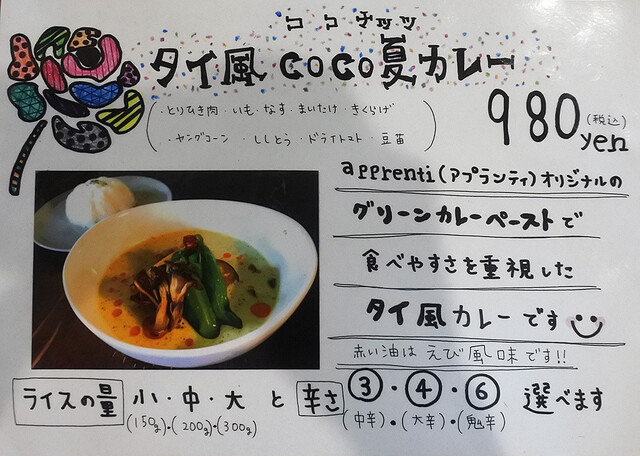 ココナッツ
タイ風 coco夏カレー
・とりひき肉・いも・なす・まいたけ・きくらげ
・ヤングコーン・ししとう・ドライトマト・豆苗
980 (税込) yen
apprenti(アプランティ)オリジナルの
グリーンカレーペーストで
食べやすさを重視した
タイ風カレーです
赤い油はえび風味です!!
ライスの量 小・中・大 と 辛さ ③・④・⑥ 選べます
(150g)・(200g)・(300g) (中辛)・(大辛)・(鬼辛)